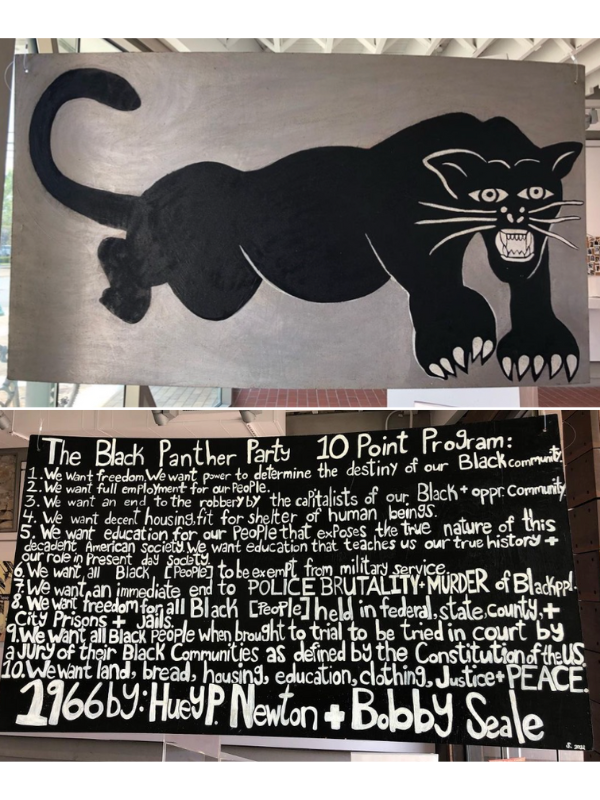 The Black Panther Party 10 Point Program:
1. We want freedom. We want power to determine the destiny of our Black community.
2. We want full employment for our People.
3. We want an end to the robbery by the capitalists of our Black + oppr. Community.
4. We want decent housing, fit for shelter of human beings.
5. We want education for our People that exposes the true nature of this
decadent American Society. We want education that teaches us our true history +
our role in Present day Society.
6. We want all Black [People] to be exempt from military service.
7. We want an immediate end to POLICE BRUTALITY + MURDER of Black ppl.
8. We want freedom for all Black [People] held in federal, state, county, +
City Prisons + Jails.
9. We Want all Black People when brought to trial to be tried in court by
a Jury of their Black Communities as defined by the Constitution of the US.
10. We want land, bread, housing, education, clothing, Justice + PEACE.
1966 by: Huey P. Newton + Bobby Seale